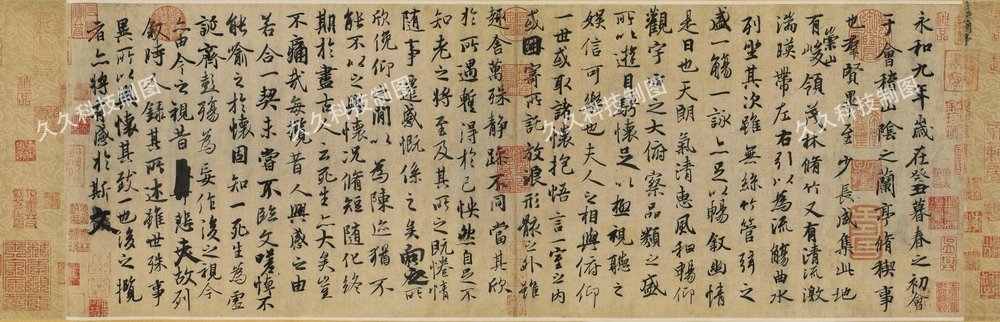 永和九年歲在癸丑暮春之初會
于會稽山陰之蘭亭脩稧事
也羣賢畢至少長咸集此地
有崇山峻領茂林脩竹又有清流激
湍暎帶左右引以為流觴曲水
列坐其次雖無絲竹管弦之
盛一觴一詠亦足以暢叙幽情
是日也天朗氣清惠風和暢仰
觀宇宙之大俯察品類之盛
所以遊目騁懷足以極視聽之
娛信可樂也夫人之相與俯仰
一世或取諸懷抱悟言一室之內
或因寄所託放浪形骸之外雖
趣舍萬殊静躁不同當其欣
於所遇蹔得於己怏然自足不
知老之將至及其所之既惓情
隨事遷感慨係之矣向之所
欣俛仰之閒以為陳迹猶不
能不以之興懷況脩短隨化終
期於盡古人云死生亦大矣豈
不痛哉每攬昔人興感之由
若合一契未嘗不臨文嗟悼不
能喻之於懷固知一死生為虛
誕齊彭殤為妄作後之視今
亦由今之視昔悲夫故列
叙時人錄其所述雖世殊事
異所以興懷其致一也後之攬
者亦將有感於斯文
久久科技制图
久久科技制图
久久科技制图
久久科技制图